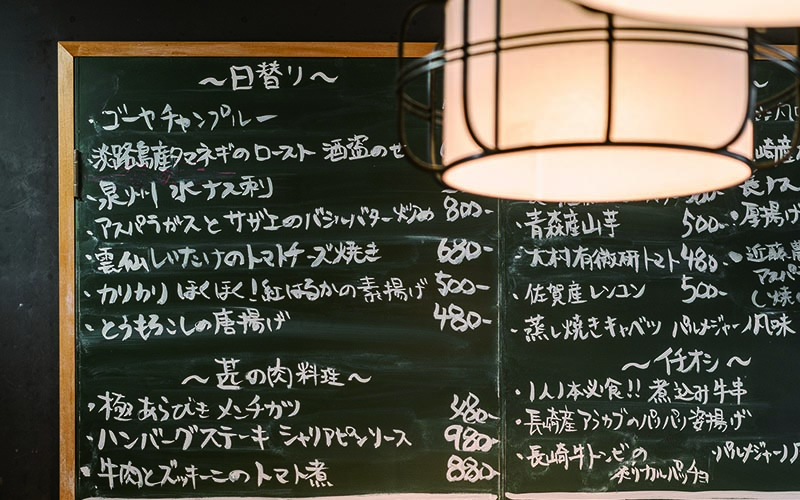 〜日替り〜
・ゴーヤチャンプルー
淡路島産タマネギのロースト 酒盗のせ
・泉州 水ナス刺
800-
・アスパラガスとサザエのバジルバター炒め
・雲仙しいたけのトマトチーズ焼き 680-
・カリカリほくほく!紅はるかの素揚げ 500-
・とうもろこしの唐揚げ 480-
〜甚の肉料理〜
・極あらびきメンチカツ 480-
・ハンバーグステーキ シャリアピンソース 980-
・牛肉とズッキーニのトマト煮 880-
・青森産山芋 500-
大村有機研トマト 480-
・佐賀産レンコン 500-
・蒸し焼きキャベツ パルメジャーノ風味
〜イチオシ〜
・1人1本必食!! 煮込み牛串
・長崎産アジカブのパリパリ姿揚げ
・長崎牛トンビの
炙りカルパッチョ
パルメジャーノ
崎産
長ナス
・厚揚げ
・近藤農
アスパ
し焼